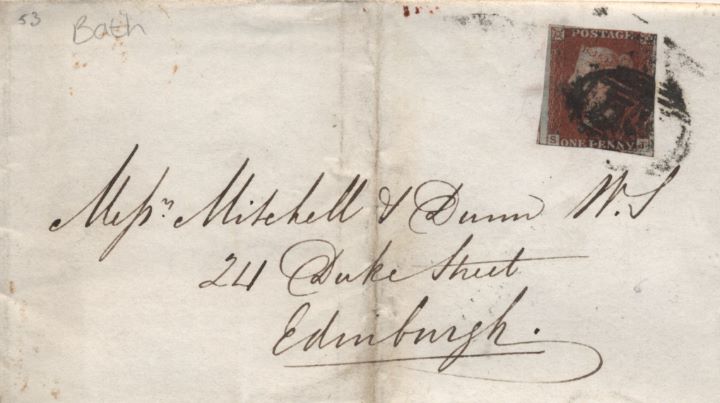 53
Bath
POSTAGE
ONE PENNY
Messrs. Mitchell & Dunn W.S
24 Duke Street
Edinburgh.